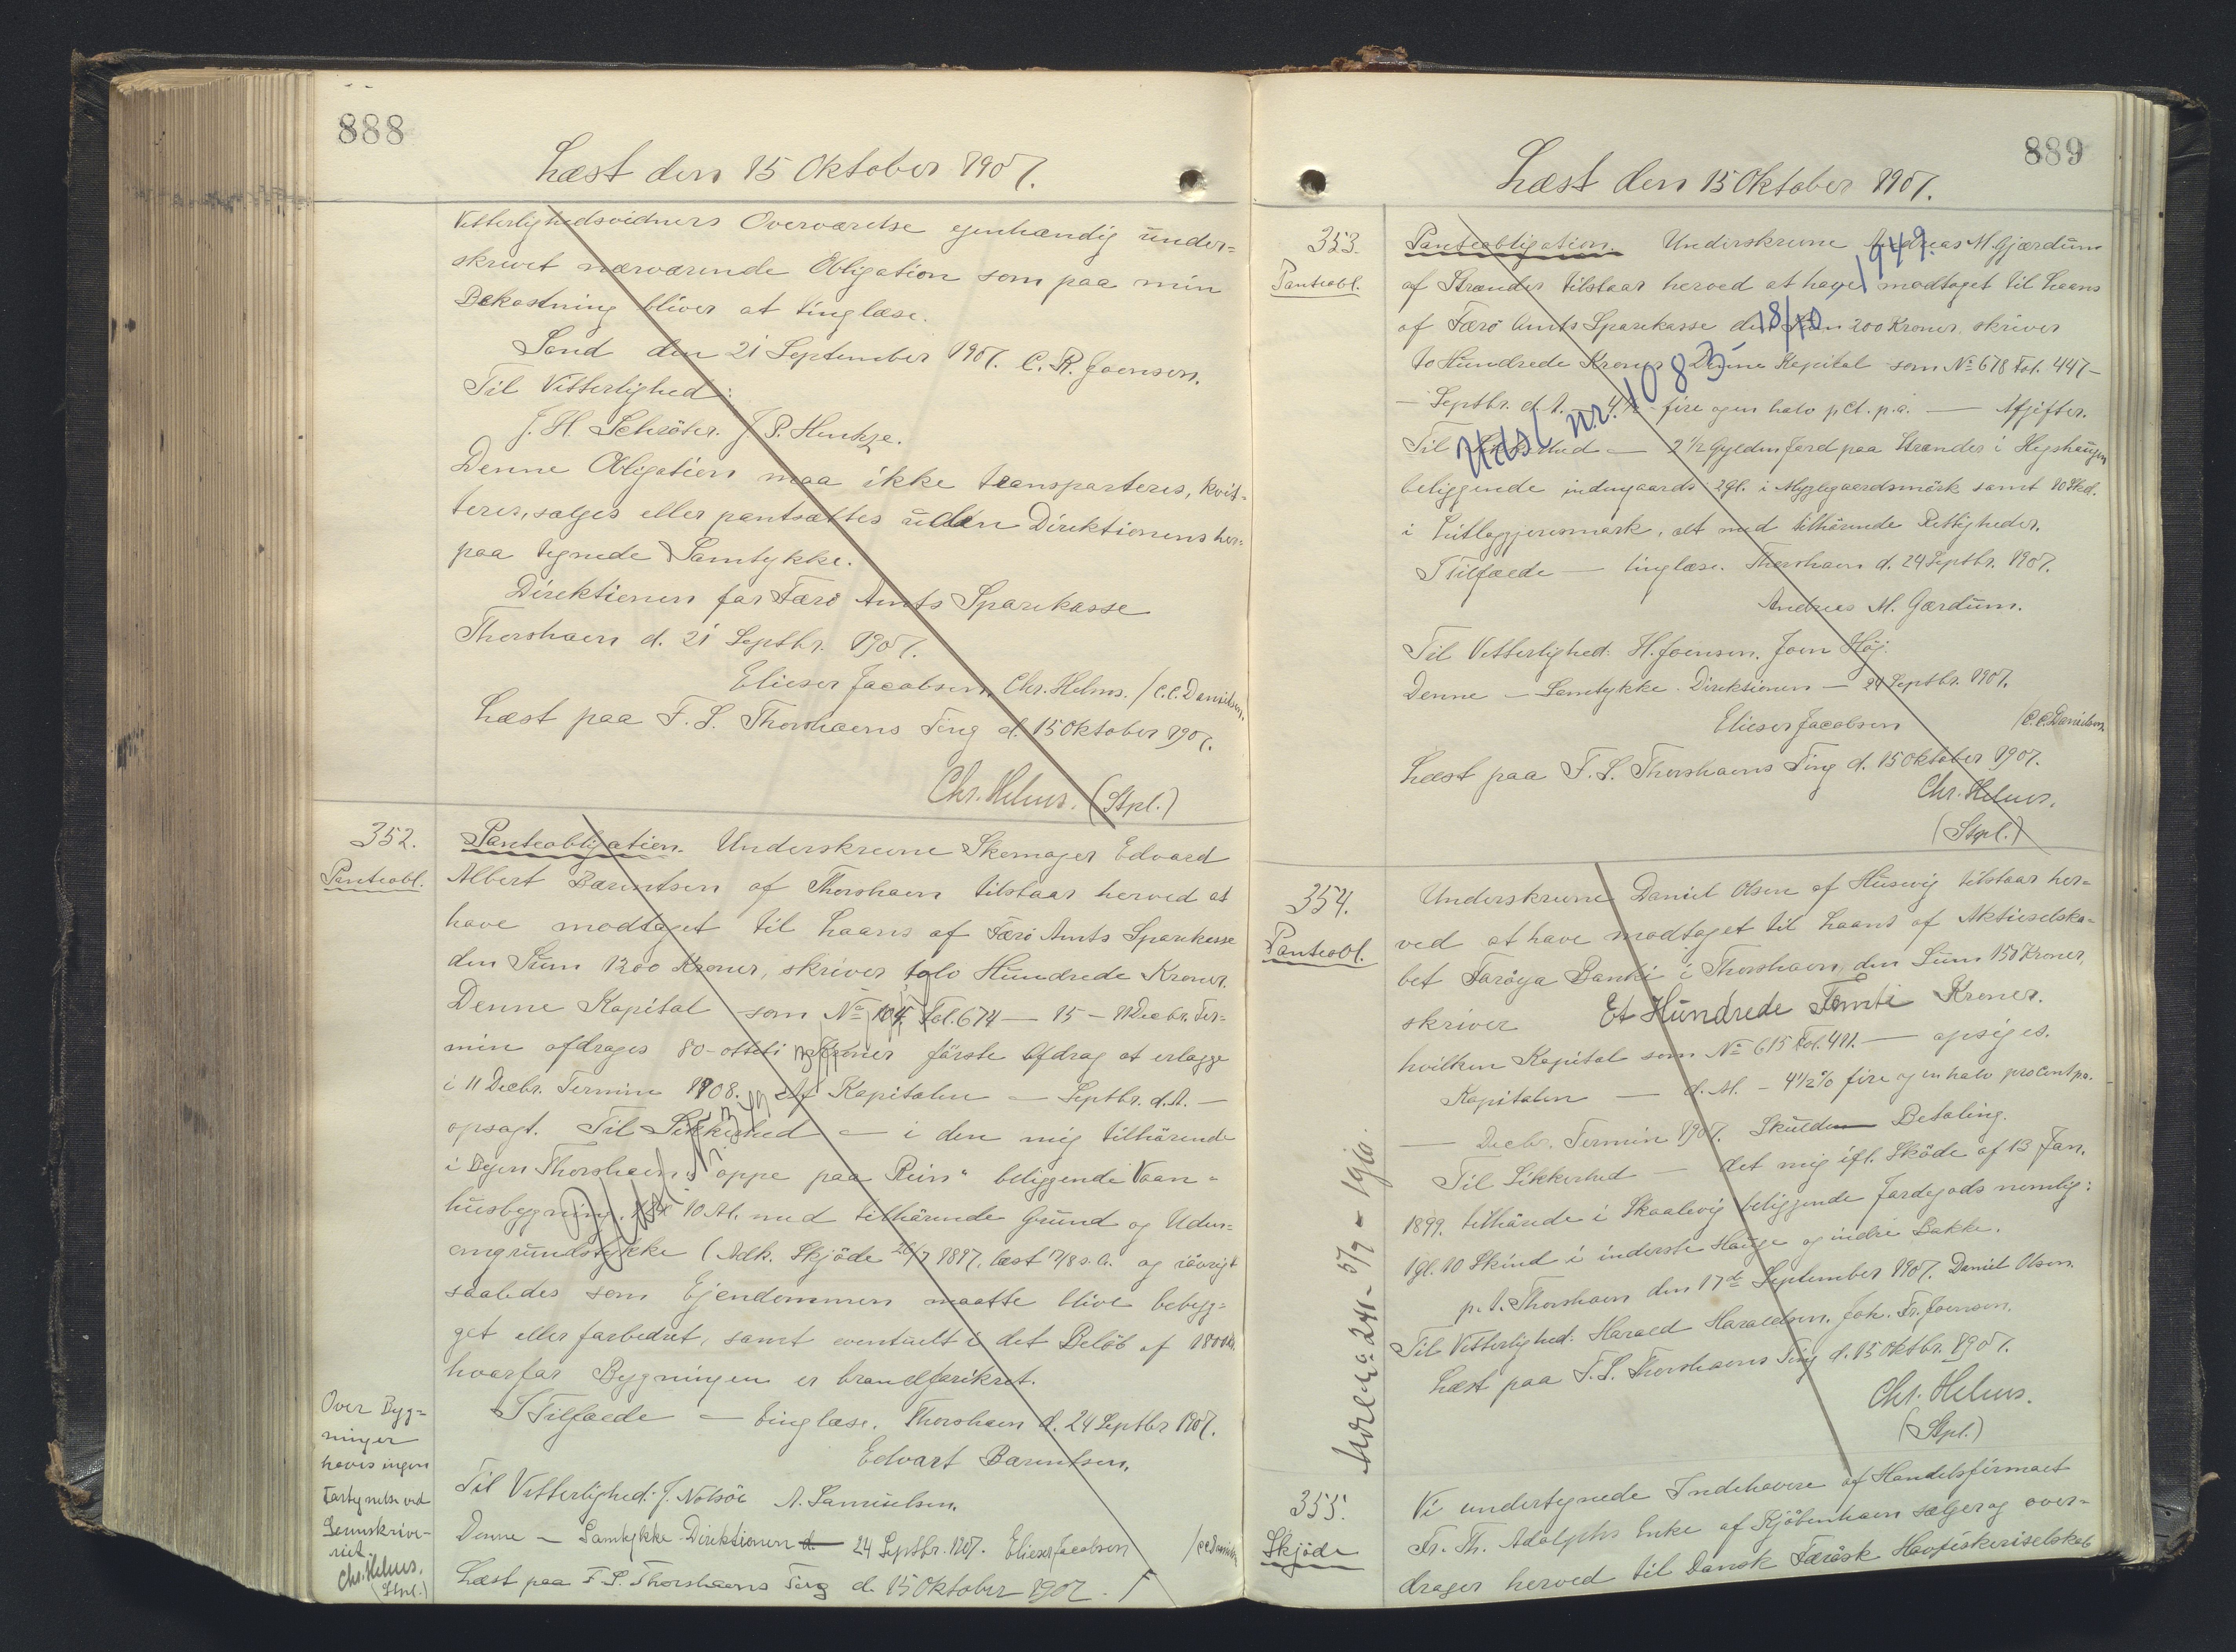 888
Læst den 15 Oktober 1907.
Vitterlighedsvidners Overværelse egenhændig under=
skrevet nærværende Obligation som paa min
Bekostning bliver at tinglæse.
Sand den 21 September 1907. C. R. Joensen.
Til Vitterlighed:
J. H. Schröter. J. P. Hentze.
Denne Obligation maa ikke transporteres, kvit=
teres, sælges eller pantsættes uden Direktionens her=
paa tegnede Samtykke.
Direktionen for Færö Amts Sparekasse
Thorshavn d. 21 Septbr. 1907.
Elieser Jacobsen, Chr. Helms. /C.C. Danielsen.
Læst paa F. S. Thorshavns Ting d. 15 Oktober 1907.
Chr. Helms. (Stpl.)
352.
Panteobl.
Panteobligation. Underskrevne Skomager Edvard
Albert Barentsen af Thorshavn tilstaar herved at
have modtaget til Laans af Færö Amts Sparekasse
den Sum 1200 Kroner, skriver tolv Hundrede Kroner.
Denne Kapital som No 104. Fol. 674 — 15 — 11 Decbr. Ter=
min afdrages 80-otteti Kroner förste Afdrag at erlægge
i 11 Decbr. Termin 1908. Af Kapitalen — Septbr. d.A. —
opsagt. Til Sikkerhed — i den mig tilhörende
i Byen Thorshavn "oppe paa Rein" beliggende Vaan=
husbygning, 10 Al. med tilhörende Grund og Uden=
omgrundstykke (Adk. Skjöde 26/7 1897, læst 17/8 s.A. og iövrigt
saaledes som Ejendommen maatte blive bebyg=
get eller forbedret, samt eventuelt i det Belöb af 1800 Kr.
hvorfor Bygningen er brandforsikret.
I Tilfælde — tinglæse. Thorshavn d. 24 Septbr 1907.
Edvart Barentsen.
Til Vitterlighed: J. Nolsöe A. Samuelsen.
Denne — Samtykke. Direktionen d. 24 Septbr. 1907. Elieser Jacobsen /C.C. Danielsen
Læst paa F. S. Thorshavns Ting d. 15 Oktober 1907.
Over Byg=
ninger
haves ingen
Fortegnelse ved
Sorenskrive-
riet.
Chr. Helms.
(Stpl.)
889
Læst den 15 Oktober 1907.
353.
Panteobl.
Panteobligation. Underskrevne Andreas M. Gjærdum
af Strænder tilstaar herved at have modtaget til Laans
af Færö Amts Sparekasse den Sum 200 Kroner, skriver
to Hundrede Kroner. Denne Kapital som No 678 Fol. 447 —
— Septbr. d. A. — 4 1/2 fire og en halv pCt. p.a. — Afgifter.
Til Sikkerhed — 2 1/2 Gylden Jord paa Strænder i Hegshaugen
beliggende indengaards 2gl. i Myglegaerdsmörk samt 10 Skd.
i Lutlaggjeresmørk, alt med tilhörende Rettigheder.
I Tilfælde — tinglæse. Thorshavn d. 24 Septbr. 1907.
Andreas M. Gærdum.
Til Vitterlighed: H. Joensen. Joen Höj.
Denne — Samtykke. Direktionen — 24 Septbr. 1907.
Elieser Jacobsen /C.C. Danielsen.
Læst paa F. S. Thorshavns Ting d. 15 Oktober 1907.
Chr. Helms.
(Stpl.)
Udsl nr. 1083 - 18/10 1949.
354.
Panteobl.
Underskrevne Daniel Olsen af Husevig tilstaar her=
ved at have modtaget til Laans af Aktieselska=
bet Faröya Banki i Thorshavn, den Sum 150 Kroner,
skriver Et Hundrede Femti Kroner.
hvilken Kapital som No 615 Fol. 411. — opsiges.
Kapitalen — d. Al. — 4 1/2 % fire og en halv procent p.a.
— Decbr. Termin 1907. Skulden Betaling.
Til Sikkerhed — det mig ifl. Sköde af 13 Jan.
1899. tilhörende i Skaalevig beliggende Jordegods nemlig:
1 gl. 10 Skind i inderste Hauge og indre Bakke.
p.t. Thorshavn den 17de September 1907. Daniel Olsen.
Til Vitterlighed: Harald Haraldsen. Joh. Fr. Joensen.
Læst paa F. S. Thorshavns Ting d. 15 Oktbr. 1907.
Chr. Helms.
(Stpl.)
355.
Skjöde
Vi undertegnede Indehavere af Handelsfirmaet
Fr. Th. Adolphs Enke af Kjöbenhavn sælger og over=
drager herved til Dansk Færösk Havfiskeriselskab